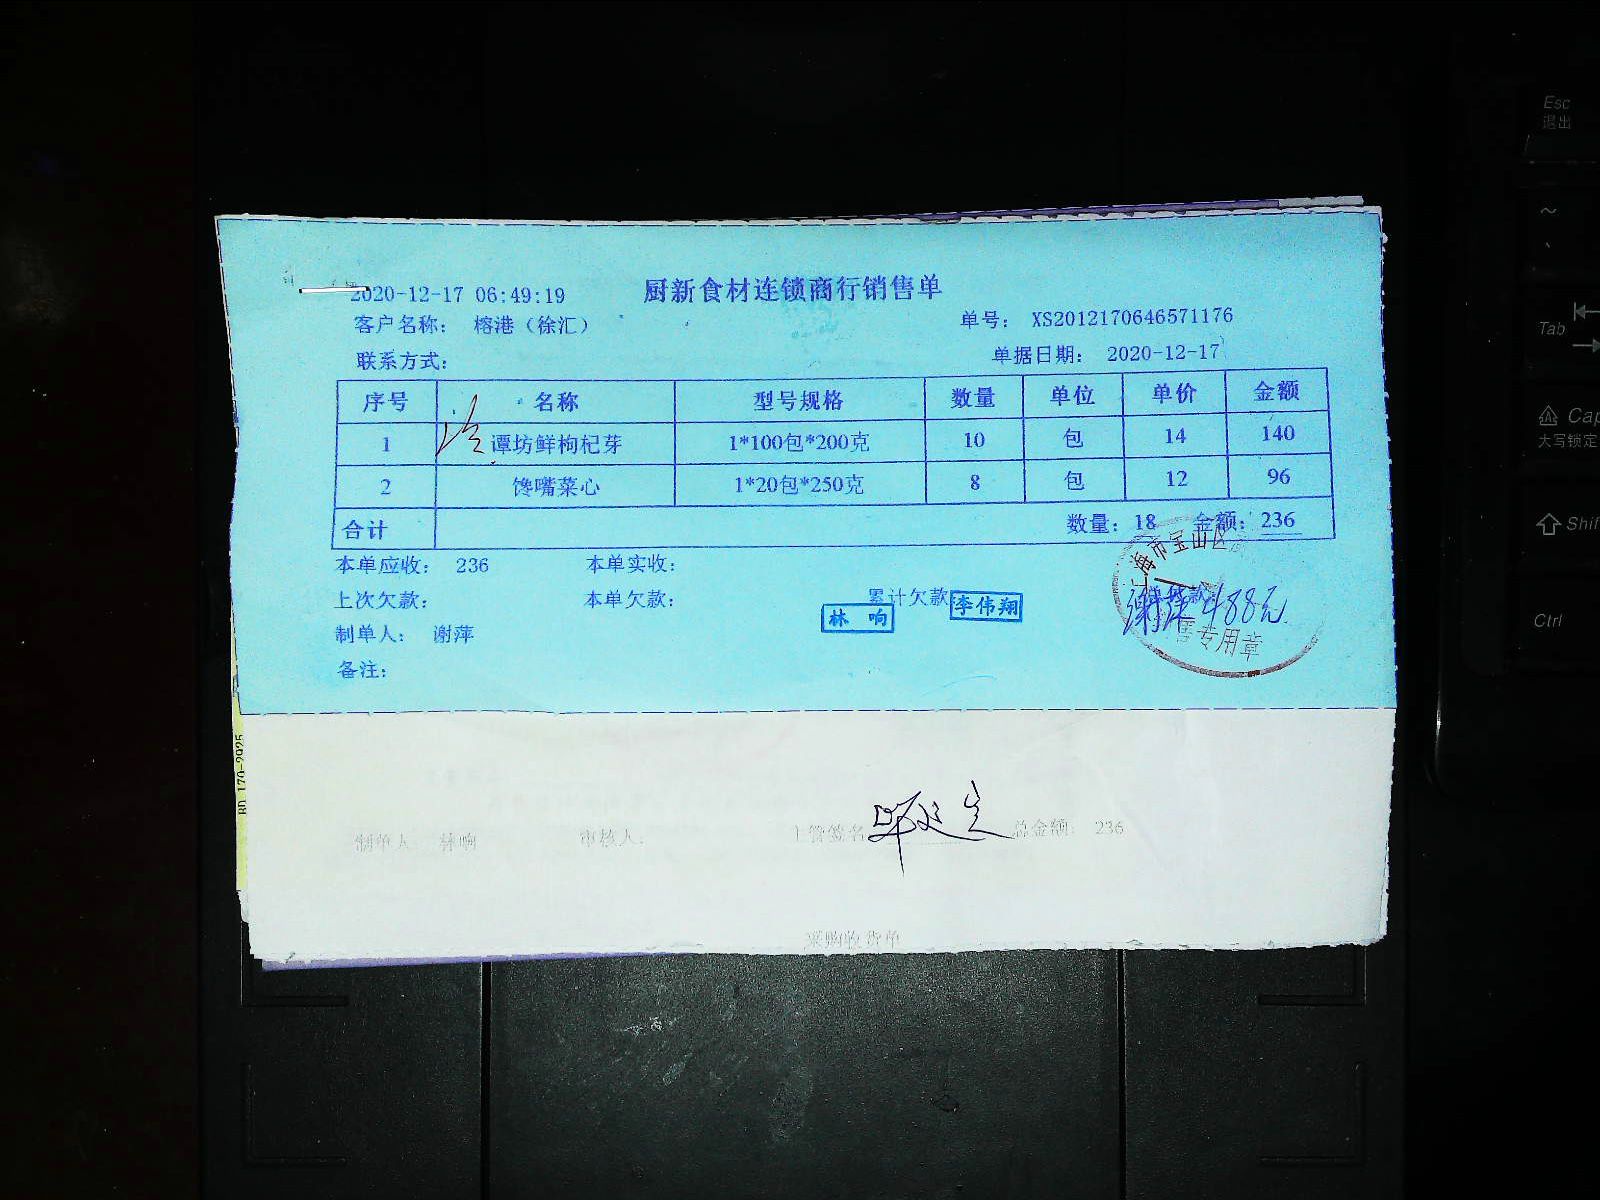 2020-12-17 06:49:19
厨新食材连锁商行销售单
客户名称： 榕港（徐汇）
单号： XS2012170646571176
联系方式：
单据日期： 2020-12-17
序号 名称 型号规格 数量 单位 单价 金额
1 谭坊鲜枸杞芽 1*100包*200克 10 包 14 140
2 馋嘴菜心 1*20包*250克 8 包 12 96
合计 数量：18 金额：236
本单应收： 236 本单实收：
上次欠款： 本单欠款： 累计欠款
林响
李伟翔
海市宝山区
谢萍 488元
售专用章
制单人： 谢萍
备注：
制单人 林响 审核人： 主管签名 总金额： 236
采购收货单
Esc
退出
~
Tab
Cap
大写锁定
Shif
Ctrl